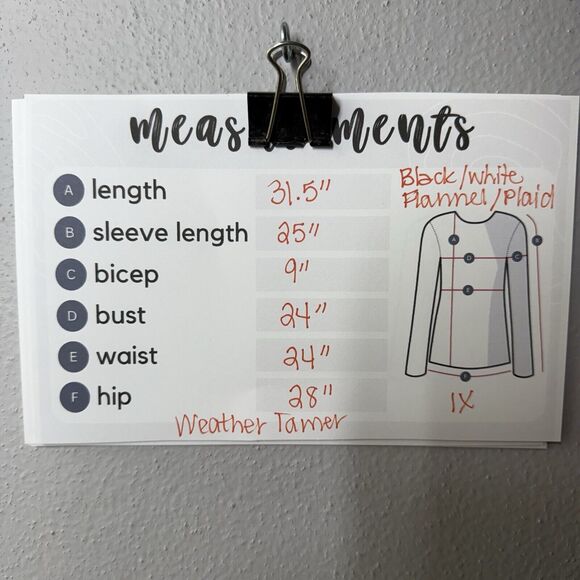 meas ments
A length 31.5"
B sleeve length 25"
C bicep 9"
D bust 24"
E waist 24"
F hip 28"
Weather Tamer
Black/white
Flannel/Plaid
A
B
D
C
E
F
1X